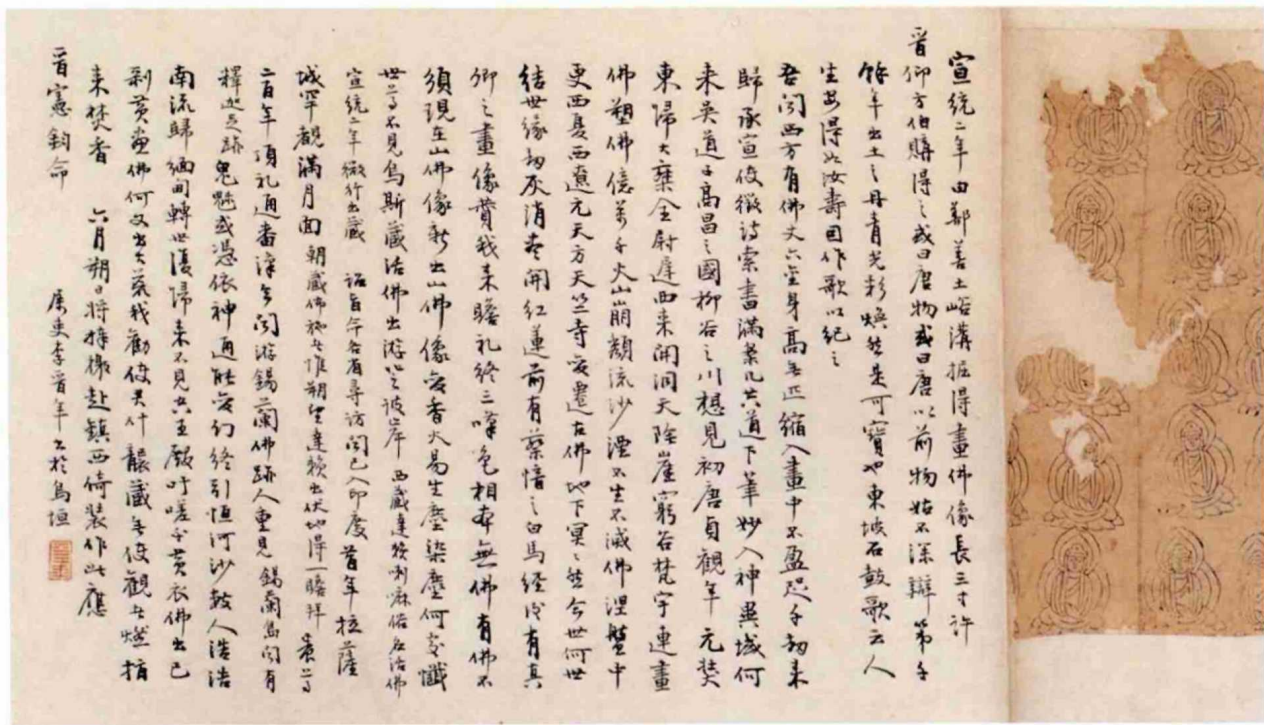 宣統二年由鄯善土峪溝掘得畫佛像長三寸許
晉仰方伯購得之或曰唐物或曰唐以前物姑不深辯第千
餘年出土之丹青光彩煥然是可寶也東坡石鼓歌云人
生安得如汝壽因作歌以紀之
吾聞西方有佛丈六金身高無匹縮入畫中不盈尺千劫來
歸承宣使徵詩索書滿案几共道下筆妙入神異域何
來吳道子高昌之國柳谷之川想見初唐貞觀年元奘
東歸大乘金尉遲西來開洞天陰崖窮谷梵宇連畫
佛塑佛億萬千火山崩頹流沙湮不生不滅佛涅槃中
更西夏西遼元天方天竺寺變遷古佛地下冥冥然今世何世
結世緣劫灰消盡開紅蓮前有蔡愔之白馬經後有真
卿之畫像贊我來瞻禮終三嘆色相本無佛有佛不
須現在山佛像新出山佛像變香火易生塵染塵何處懺
世尊不見烏斯藏活佛出游登彼岸 西藏達賴喇嘛俗名活佛
宣統二年微行出藏 諭旨午各省尋訪聞已入印度 昔年拉薩
城罕觀滿月面 朝藏佛地者惟朔望達賴出伏地得一瞻拜 表尊
二百年頂禮通番漢今聞游錫蘭佛跡人重見 錫蘭島聞有
釋迦足跡 鬼魅或憑依神通能變幻終引恆河沙數人浩浩
南流歸緬甸轉世復歸來不見共王殿吁嗟乎黃衣佛出已
剎黃畫佛何又出共藏我勸使君什襲藏無使觀者燃指
來焚香 六月朔日將捧檄赴鎮西倚裝作此應
晉憲鈞命 屬吏李晉年書於烏垣